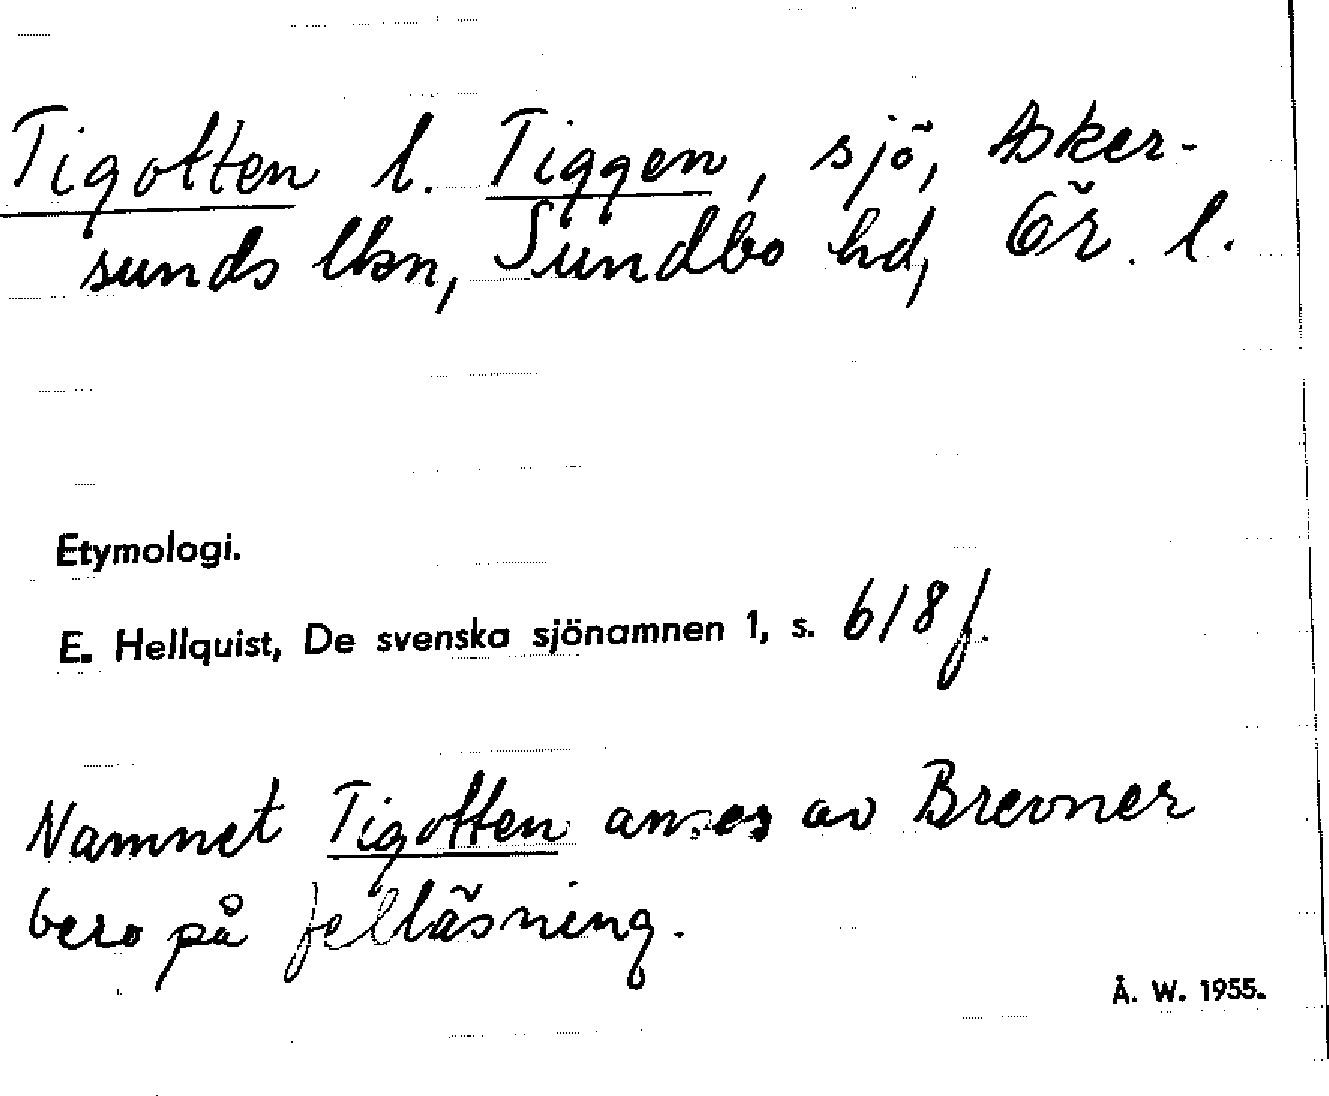 Tigotten l. Tiggen, sjö, Asker-
sunds lksn, Sundbo hd, Ör. l.
Etymologi.
E. Hellquist, De svenska sjönamnen 1, s. 618 f.
Namnet Tigotten anses av Brevner
bero på felläsning.
Å. W. 1955.